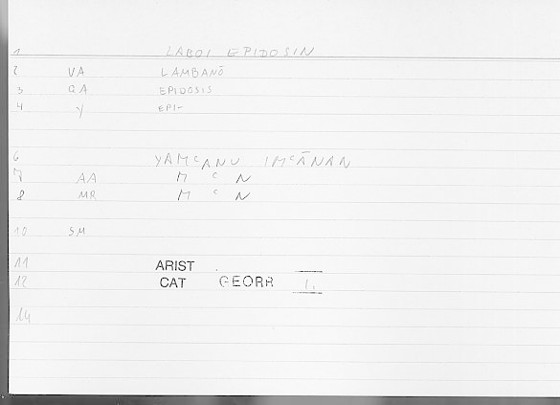 1 LABOI EPIDOSIN
2 VA LAMBANŌ
3 QA EPIDOSIS
4 Y EPI-
6 YAMᶜANU IMᶜĀNAN
7 AA M ᶜ N
8 MR M ᶜ N
10 SM
11 ARIST
12 CAT GEORR 1.
14